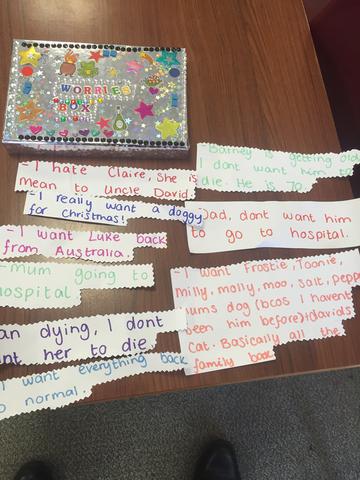 WORRIES
BOX
- I hate Claire, She is
mean to Uncle David.
- I really want a doggy
for christmas!
- I want Luke back
from Australia.
- mum going to
hospital
an dying, I dont
nt her to die.
I want everything back
o normal.
- Barney is getting old
I dont want him to
die. He is 70.
Dad, dont want him
to go to hospital.
- I want Frostie, Toonie,
milly, molly, moo, salt, pepp
ums dog (bcos I havent
been him before) + davids
cat. Basically all the
family back.